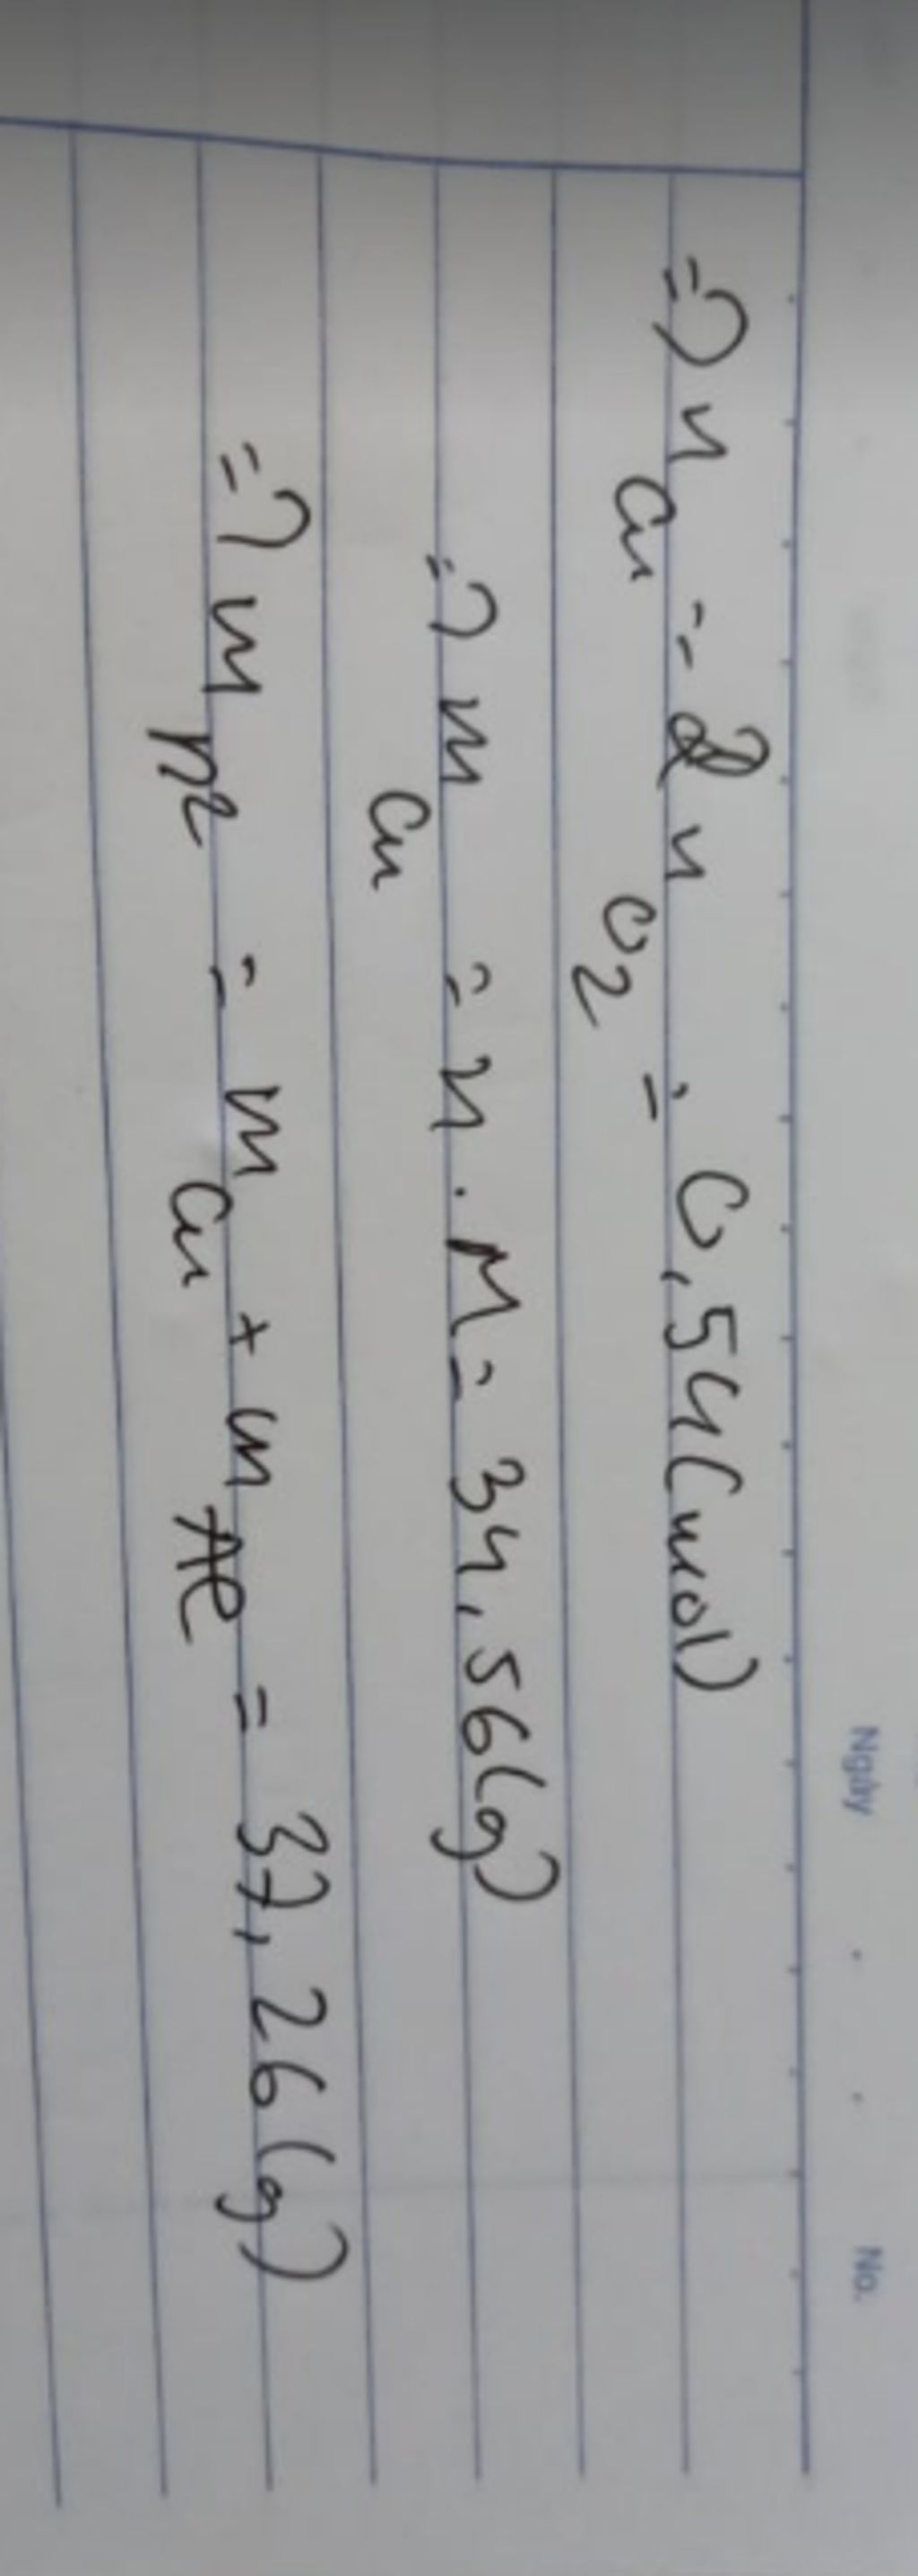 Ngày . . No.
=> n Cu = 2 n O2 = 0,54 (mol)
=> m Cu = n . M = 34,56 (g)
=> m pư = m Cu + m Al = 37,26 (g)